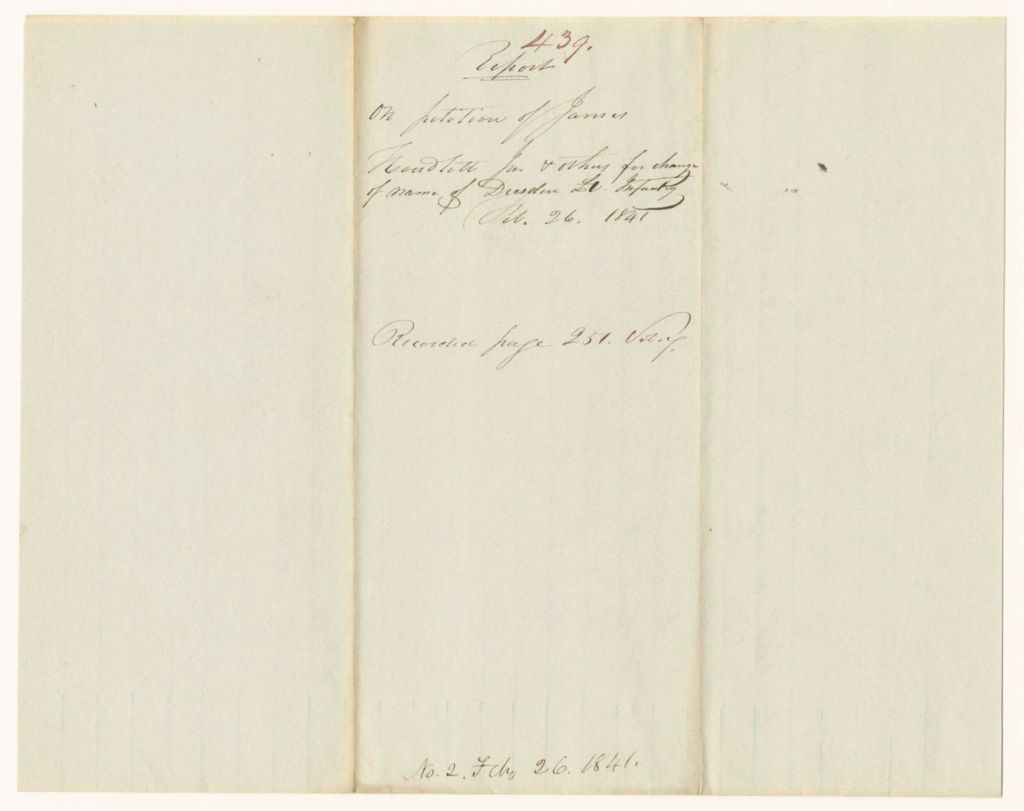 439.
Report
On petition of James
Houdlett Jr. & others for change
of name of Dresden Lt. Infantry
Feb. 26. 1841
Recorded page 251. Vol. 7.
No. 2. Feby 26. 1841.